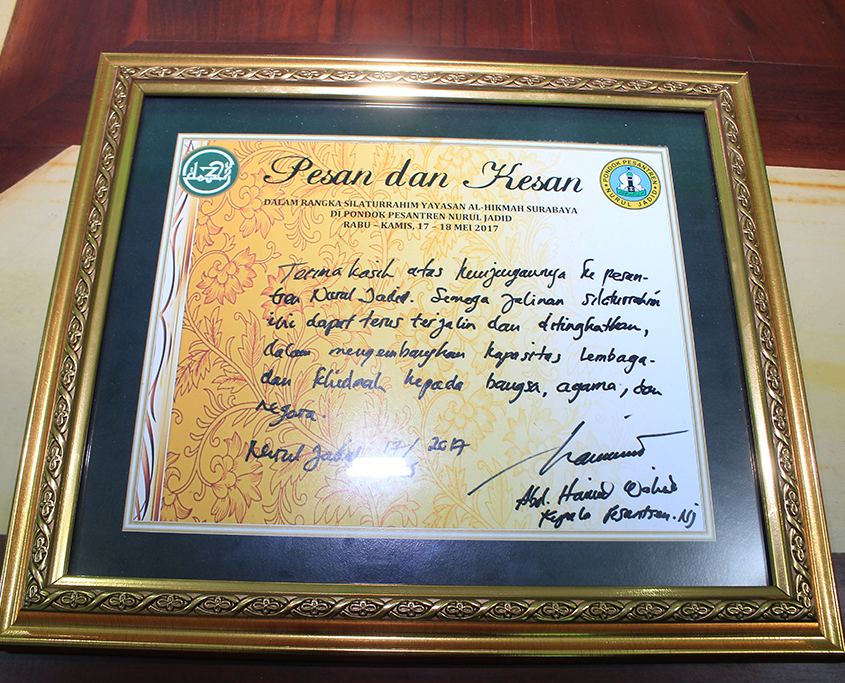 Pesan dan Kesan
DALAM RANGKA SILATURRAHIM YAYASAN AL-HIKMAH SURABAYA
DI PONDOK PESANTREN NURUL JADID
RABU - KAMIS, 17 - 18 MEI 2017
PONDOK PESANTREN
NURUL JADID
Terima kasih atas kunjungannya ke pesan-
tren Nurul Jadid. Semoga jalinan silaturrahim
ini dapat terus terjalin dan ditingkatkan,
dalam mengembangkan kapasitas lembaga-
dan khidmah kepada bangsa, agama, dan
negara.
Nurul Jadid 17/ 2017
Abd. Hamid Wahid
Kepala Pesantren. NJ